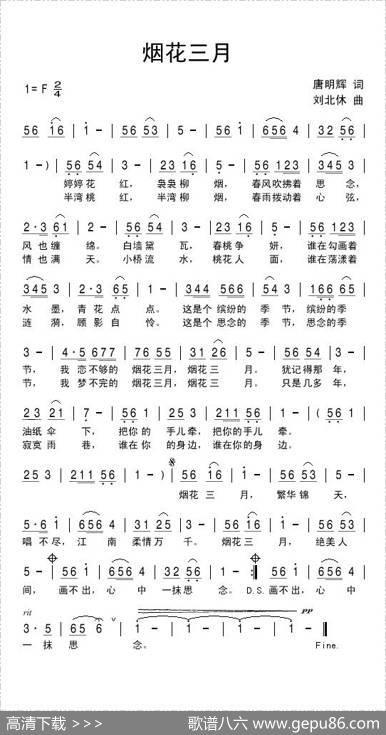 烟花三月
1=F 2/4
唐明辉 词
刘北休 曲
56 16 | 1 - | 56 53 | 5 - | 56 1 | 656 4 | 32 56 |
1 -) | 56 54 | 3 - | 23 16 | 5 - | 56 123 | 345 3 |
婷婷花 红, 袅袅柳 烟, 春风吹拂着 思 念,
半湾桃 红, 半湾柳 烟, 春雨拨动着 心 弦,
2·3 65 | 2 - | 56 54 | 3 - | 23 16 | 5 - | 56 123 |
风也缠 绵。 白墙黛 瓦, 春桃争 妍, 谁在勾画着
情也满 天。 小桥流 水, 桃花人 面, 谁在荡漾着
345 3 | 2·3 65 | 1 - | 344 566 | 345 3 | 166 65 |
水 墨, 青花点 点。 这是个 缤纷的 季 节, 缤纷的季
涟 漪, 顾影自 怜。 这是个 思念的 季 节, 思念的季
3 - | 4·5 677 | 76 55 | 31 26 | 5 - | 56 54 | 3 - |
节, 我 恋不够的 烟花三月, 烟花 三 月。 犹记得那 年,
节, 我 梦不完的 烟花三月, 烟花 三 月。 只是几多 年,
23 21 | 7 - | 56 1 | 25 3 | 211 56 | 1 - | (56 1 |
油纸 伞 下, 把你 的 手儿 牵, 把你的手儿 牵。
寂寞 雨 巷, 谁在 你 的身 边, 谁在你的身 边。
25 3 | 211 56 | 1 -) | 56 16 | 1 - | 56 53 | 5 - |
烟花 三 月, 繁华 锦 天,
5·6 1 | 656 4 | 31 26 | 5 - | 56 16 | 1 - | 56 53 |
唱 不尽, 江 南 柔情万 千。 烟花 三 月, 绝美人
5 - | 56 1 | 656 4 | 32 56 | 1 - :| 56 1 | 656 4 |
间, 画不 出, 心 中 一抹思 念。 D.S. 画不 出, 心 中
rit pp
3·5 | 65 6 | 1 - | 1 - | 1 - | 1 - ‖
一 抹 思 念。 Fine.
高清下载 >>> 歌谱八六 www.gepu86.com